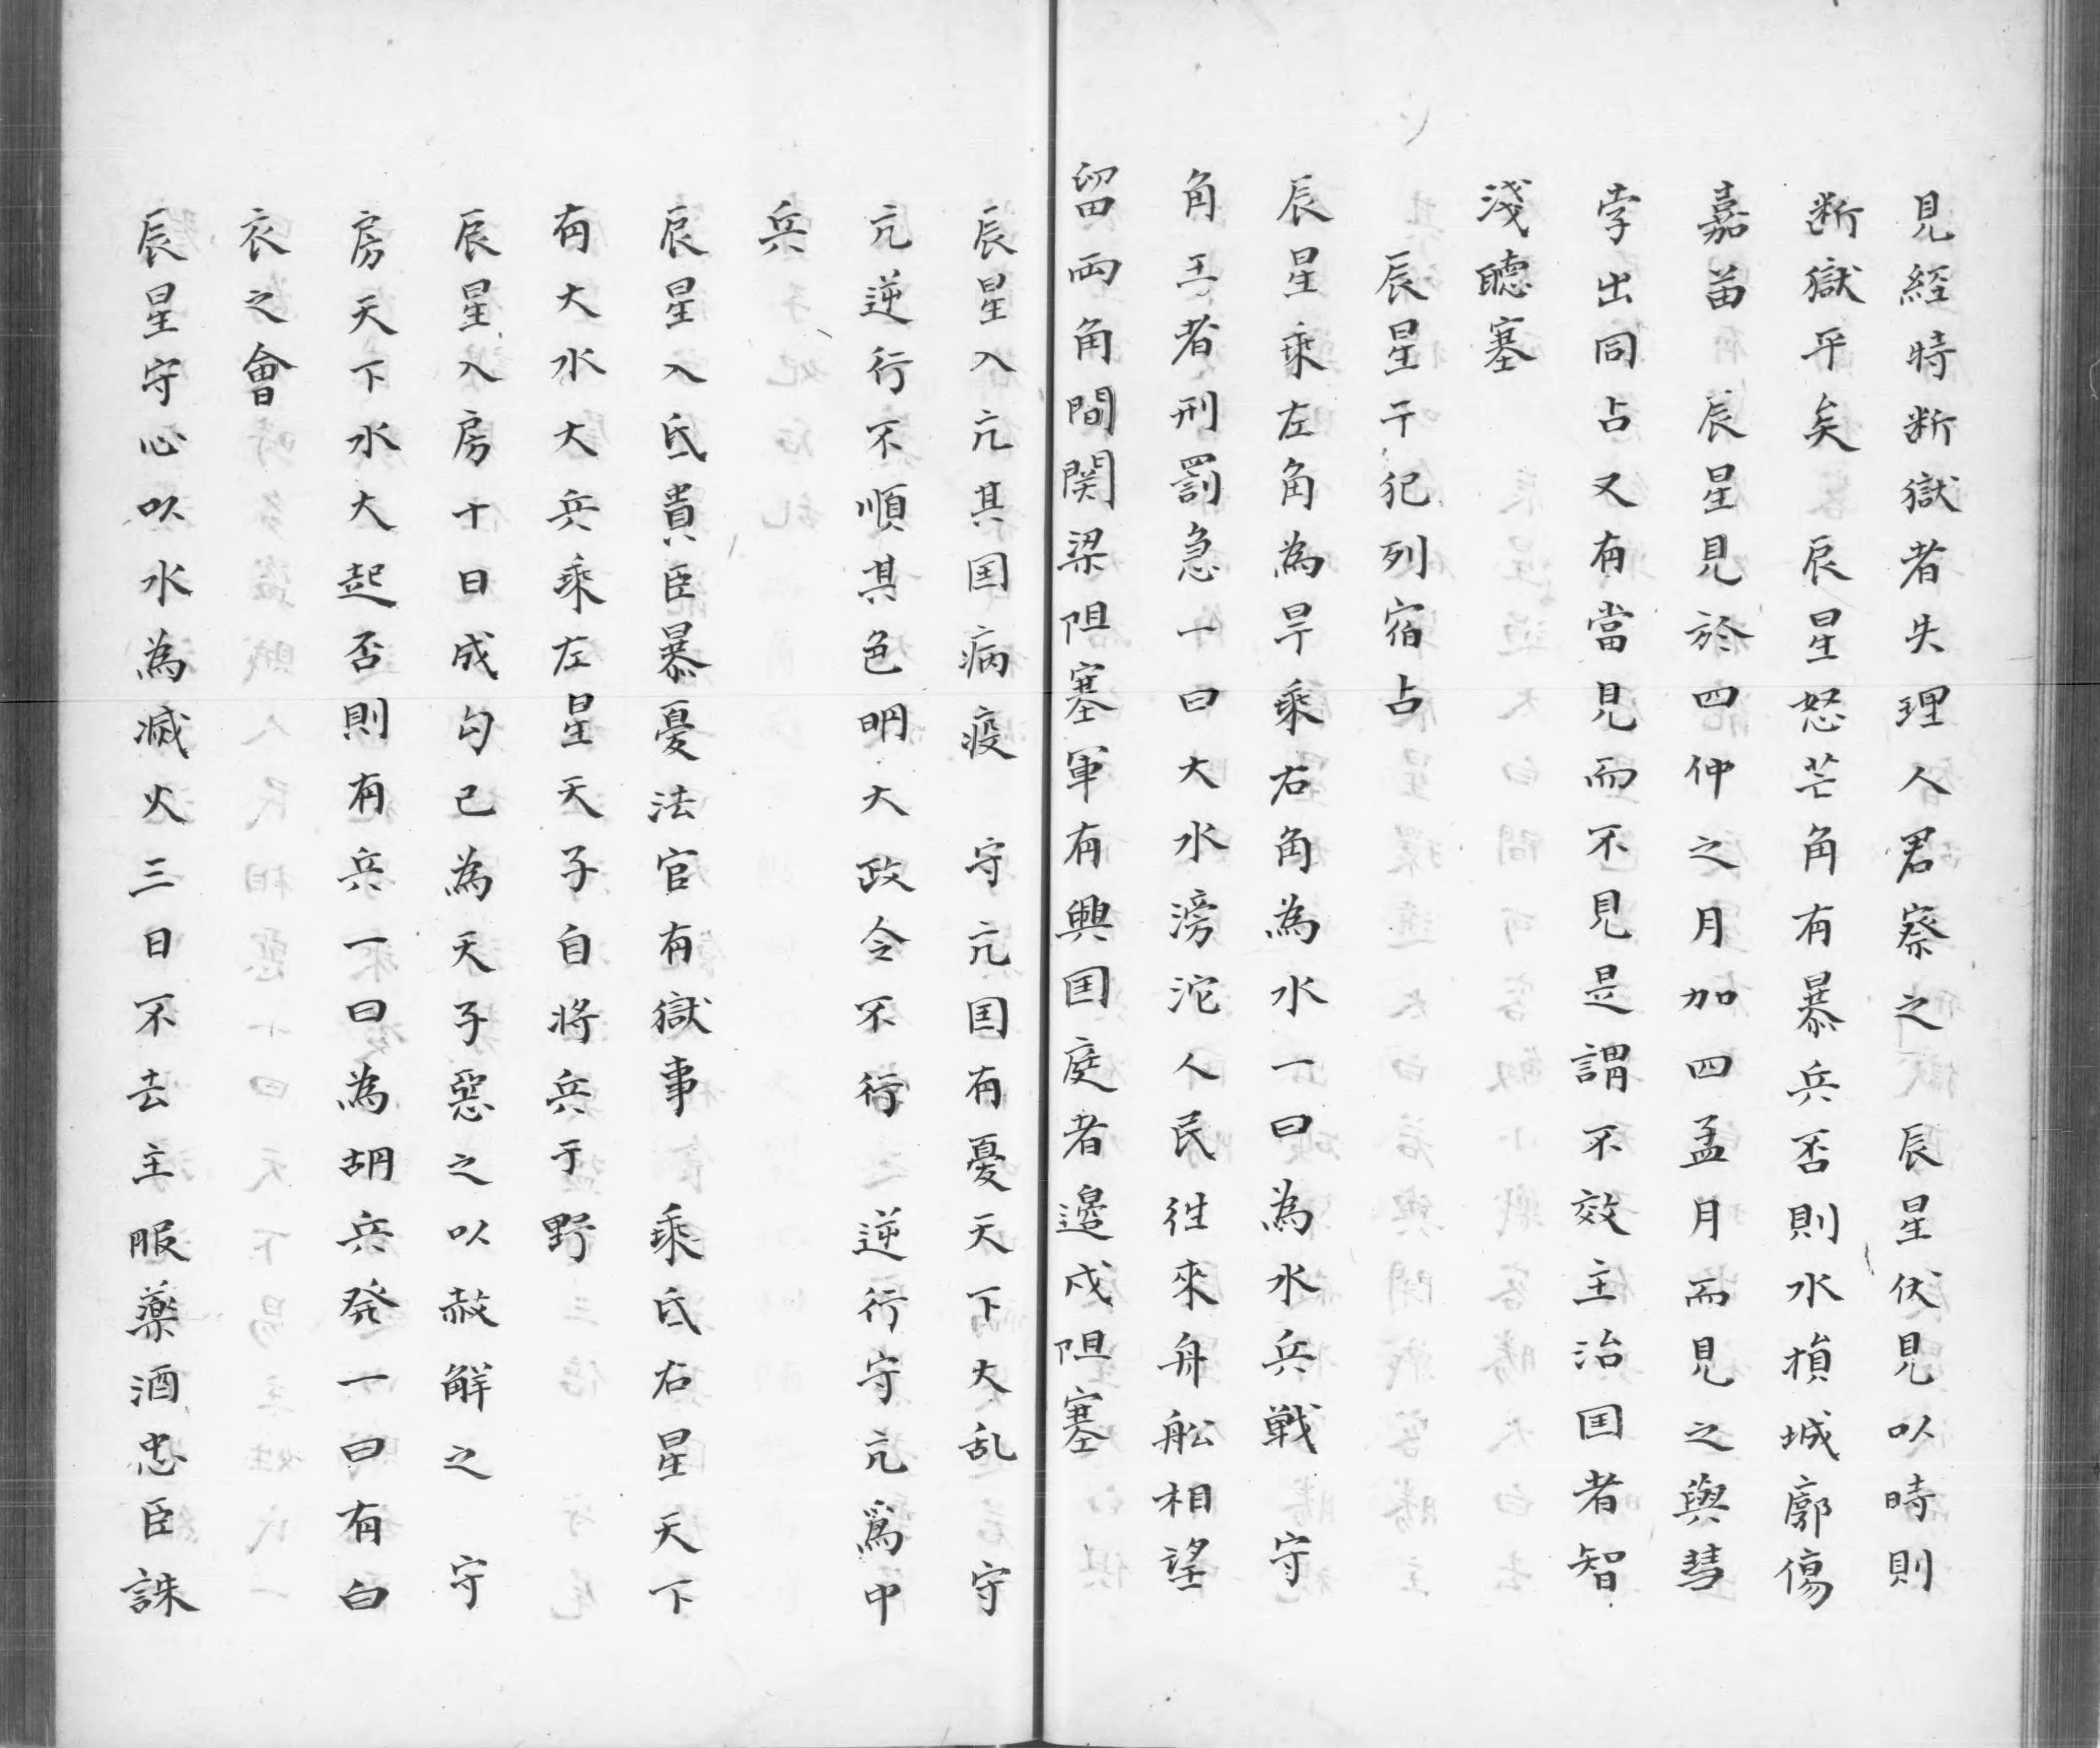 見経時断獄者失理人君察之　辰星伏見以時則
断獄平矣　辰星怒芒角有暴兵否則水損城廓傷
嘉苗　辰星見於四仲之月加四孟月而見之與彗
孛出同占又有當見而不見是謂不效主治国者智
淺聴塞
辰星干犯列宿占
辰星乘左角為旱乘右角為水一曰為水兵戦　守
角王者刑罰急一曰大水滂沱人民徃來舟舩相望
留両角間関梁阻塞軍有興国庭者邊戍阻塞
辰星入亢其国病疫　守亢国有憂天下大乱　守
亢逆行不順其色明大政令不行　逆行守亢爲中
兵
辰星入氐貴臣暴憂法官有獄事　乘氐右星天下
有大水大兵乘左星天子自将兵于野
辰星入房十日成勾已為天子惡之以赦解之　守
房天下水大起否則有兵一曰為胡兵発一曰有白
衣之會
辰星守心以水為滅火三日不去主服藥酒忠臣誅